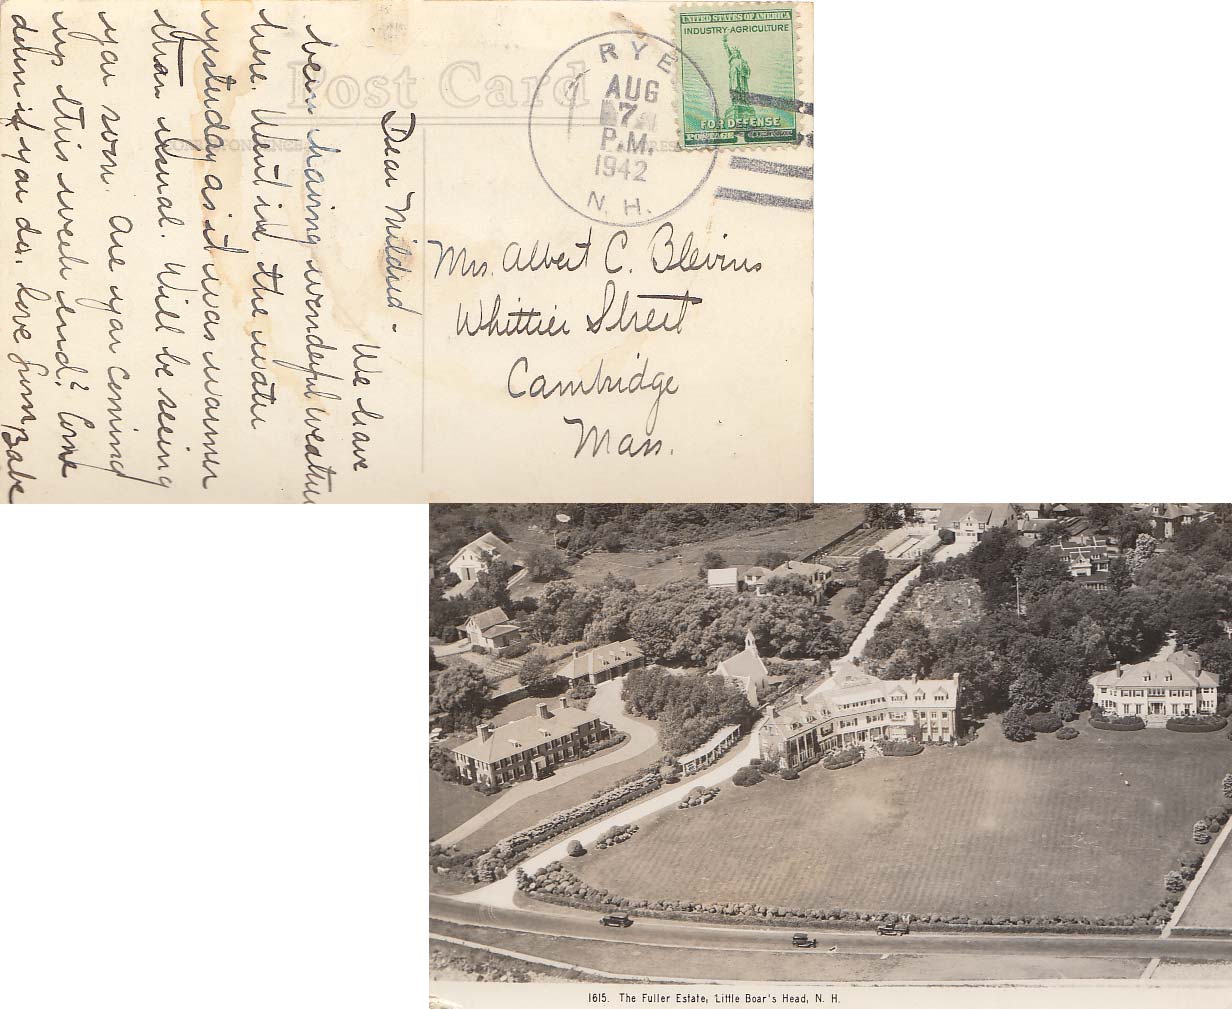 Post Card
CORRESPONDENCE
RYE
AUG
7
P.M.
1942
N. H.
UNITED STATES OF AMERICA
INDUSTRY-AGRICULTURE
FOR DEFENSE
POSTAGE 1
Dear Mildred - We have
been having wonderful weather
here. Went in the water
yesterday as it was warmer
than usual. Will be seeing
you soon. Are you coming
up this week end? Come
down if you do. Love from Babe
Mrs. Albert C. Blevins
Whittier Street
Cambridge
Mass.
1615. The Fuller Estate, Little Boar's Head, N. H.